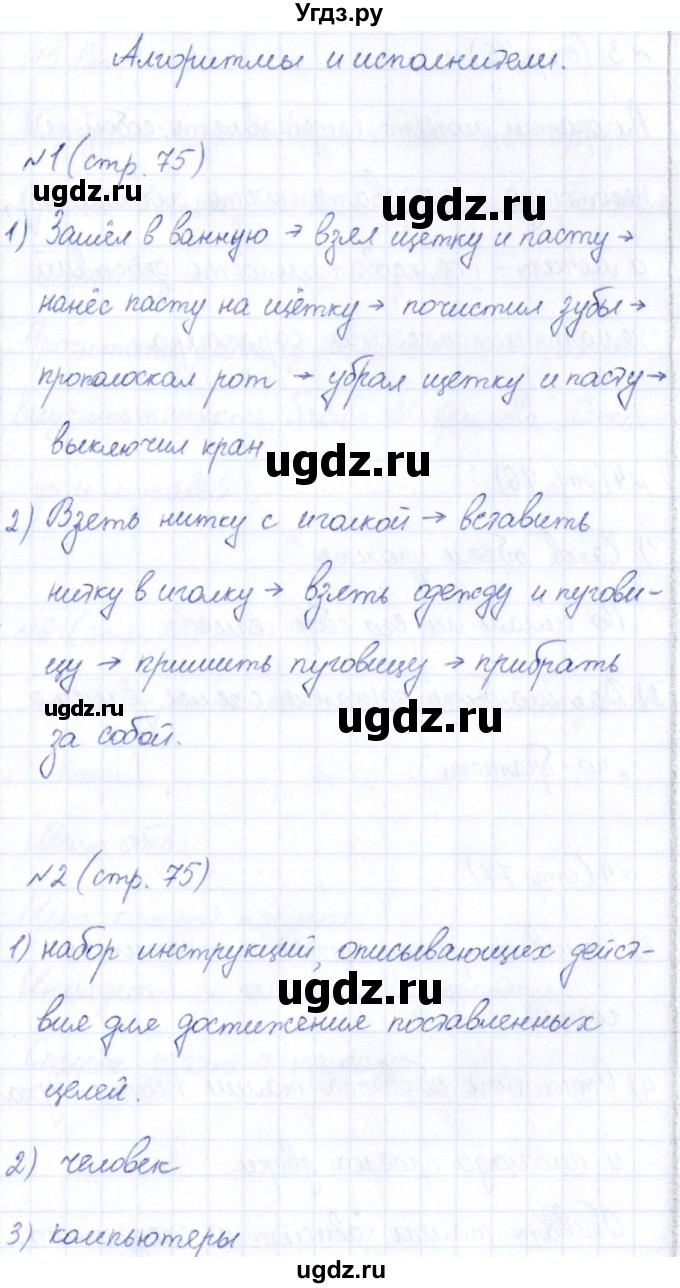 Угдз.ру
Алгоритмы и исполнители.
№1 (стр. 75)
ugdz.ru
ugdz.ru
1) Зашёл в ванную → взял щетку и пасту →
нанёс пасту на щётку → почистил зубы →
ugdz.ru
прополоскал рот → убрал щетку и пасту →
выключил кран
ugdz.ru
2) Взять нитку с иголкой → вставить
ugdz.ru
нитку в иголку → взять одежду и пугови-
цу → пришить пуговицу → прибрать
ugdz.ru
ugdz.ru
за собой.
№2 (стр. 75)
ugdz.ru
1) набор инструкций, описывающих дейст-
ugdz.ru
вие для достижения поставленных
целей.
ugdz.ru
2) человек
ugdz.ru
3) компьютеры
ugdz.ru